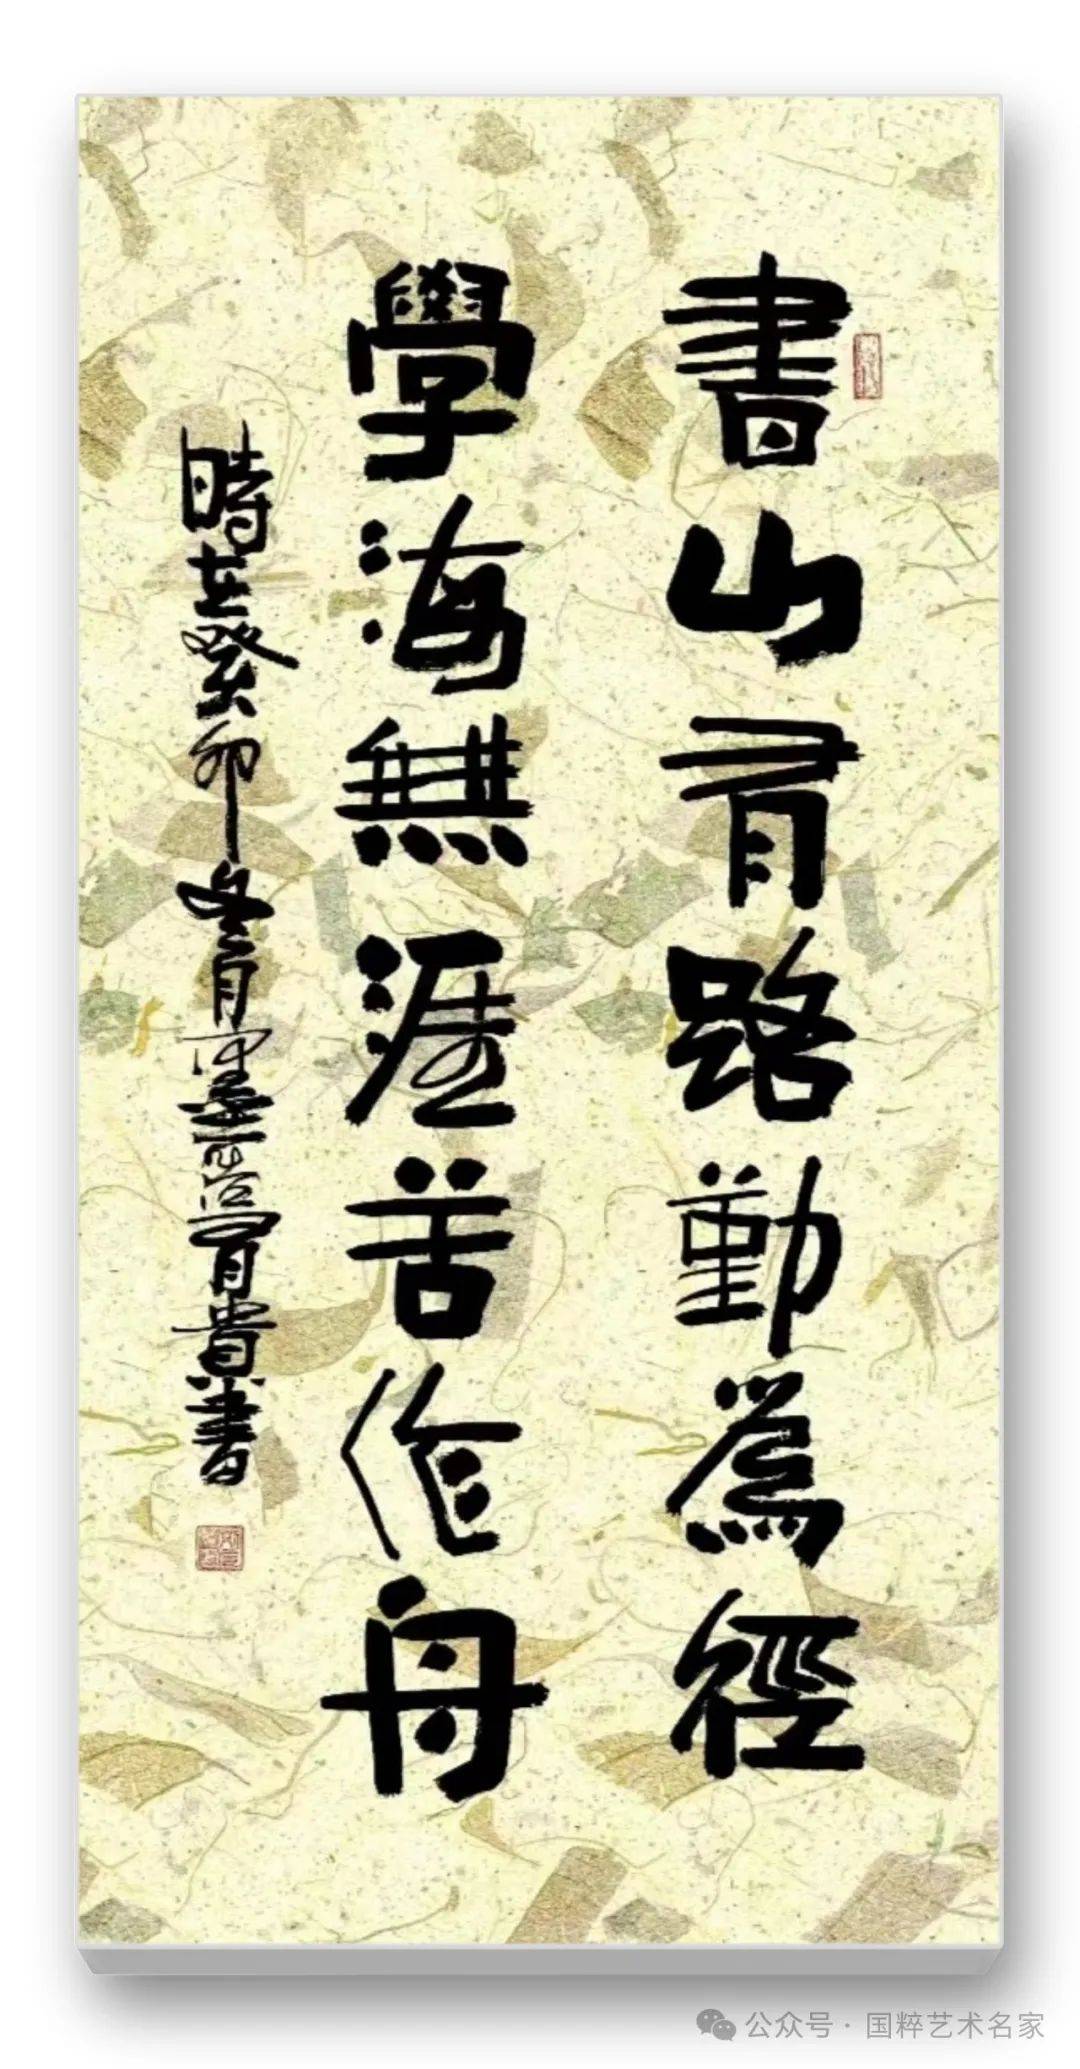 書山有路勤為徑
學海無涯苦作舟
時在癸卯冬月 貴書
公众号·国粹艺术名家